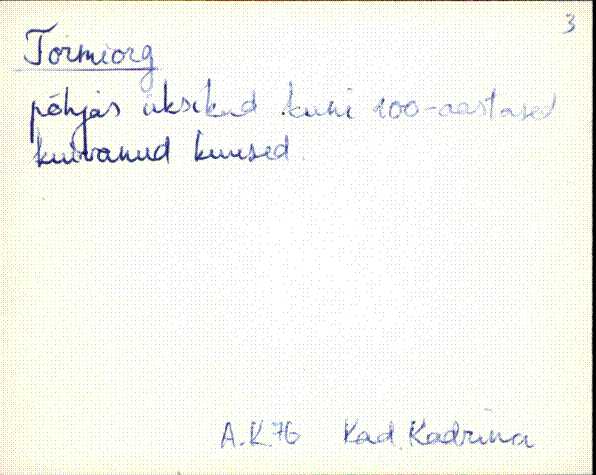 3
Tormiorg
põhjas üksikud kuni 100-aastased
kuivanud kuused.
A.K.76 Kad. Kadrina